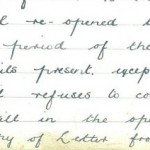 re-opened
period of the
present, excep
refuses to co
all in the ope
of Letter fro